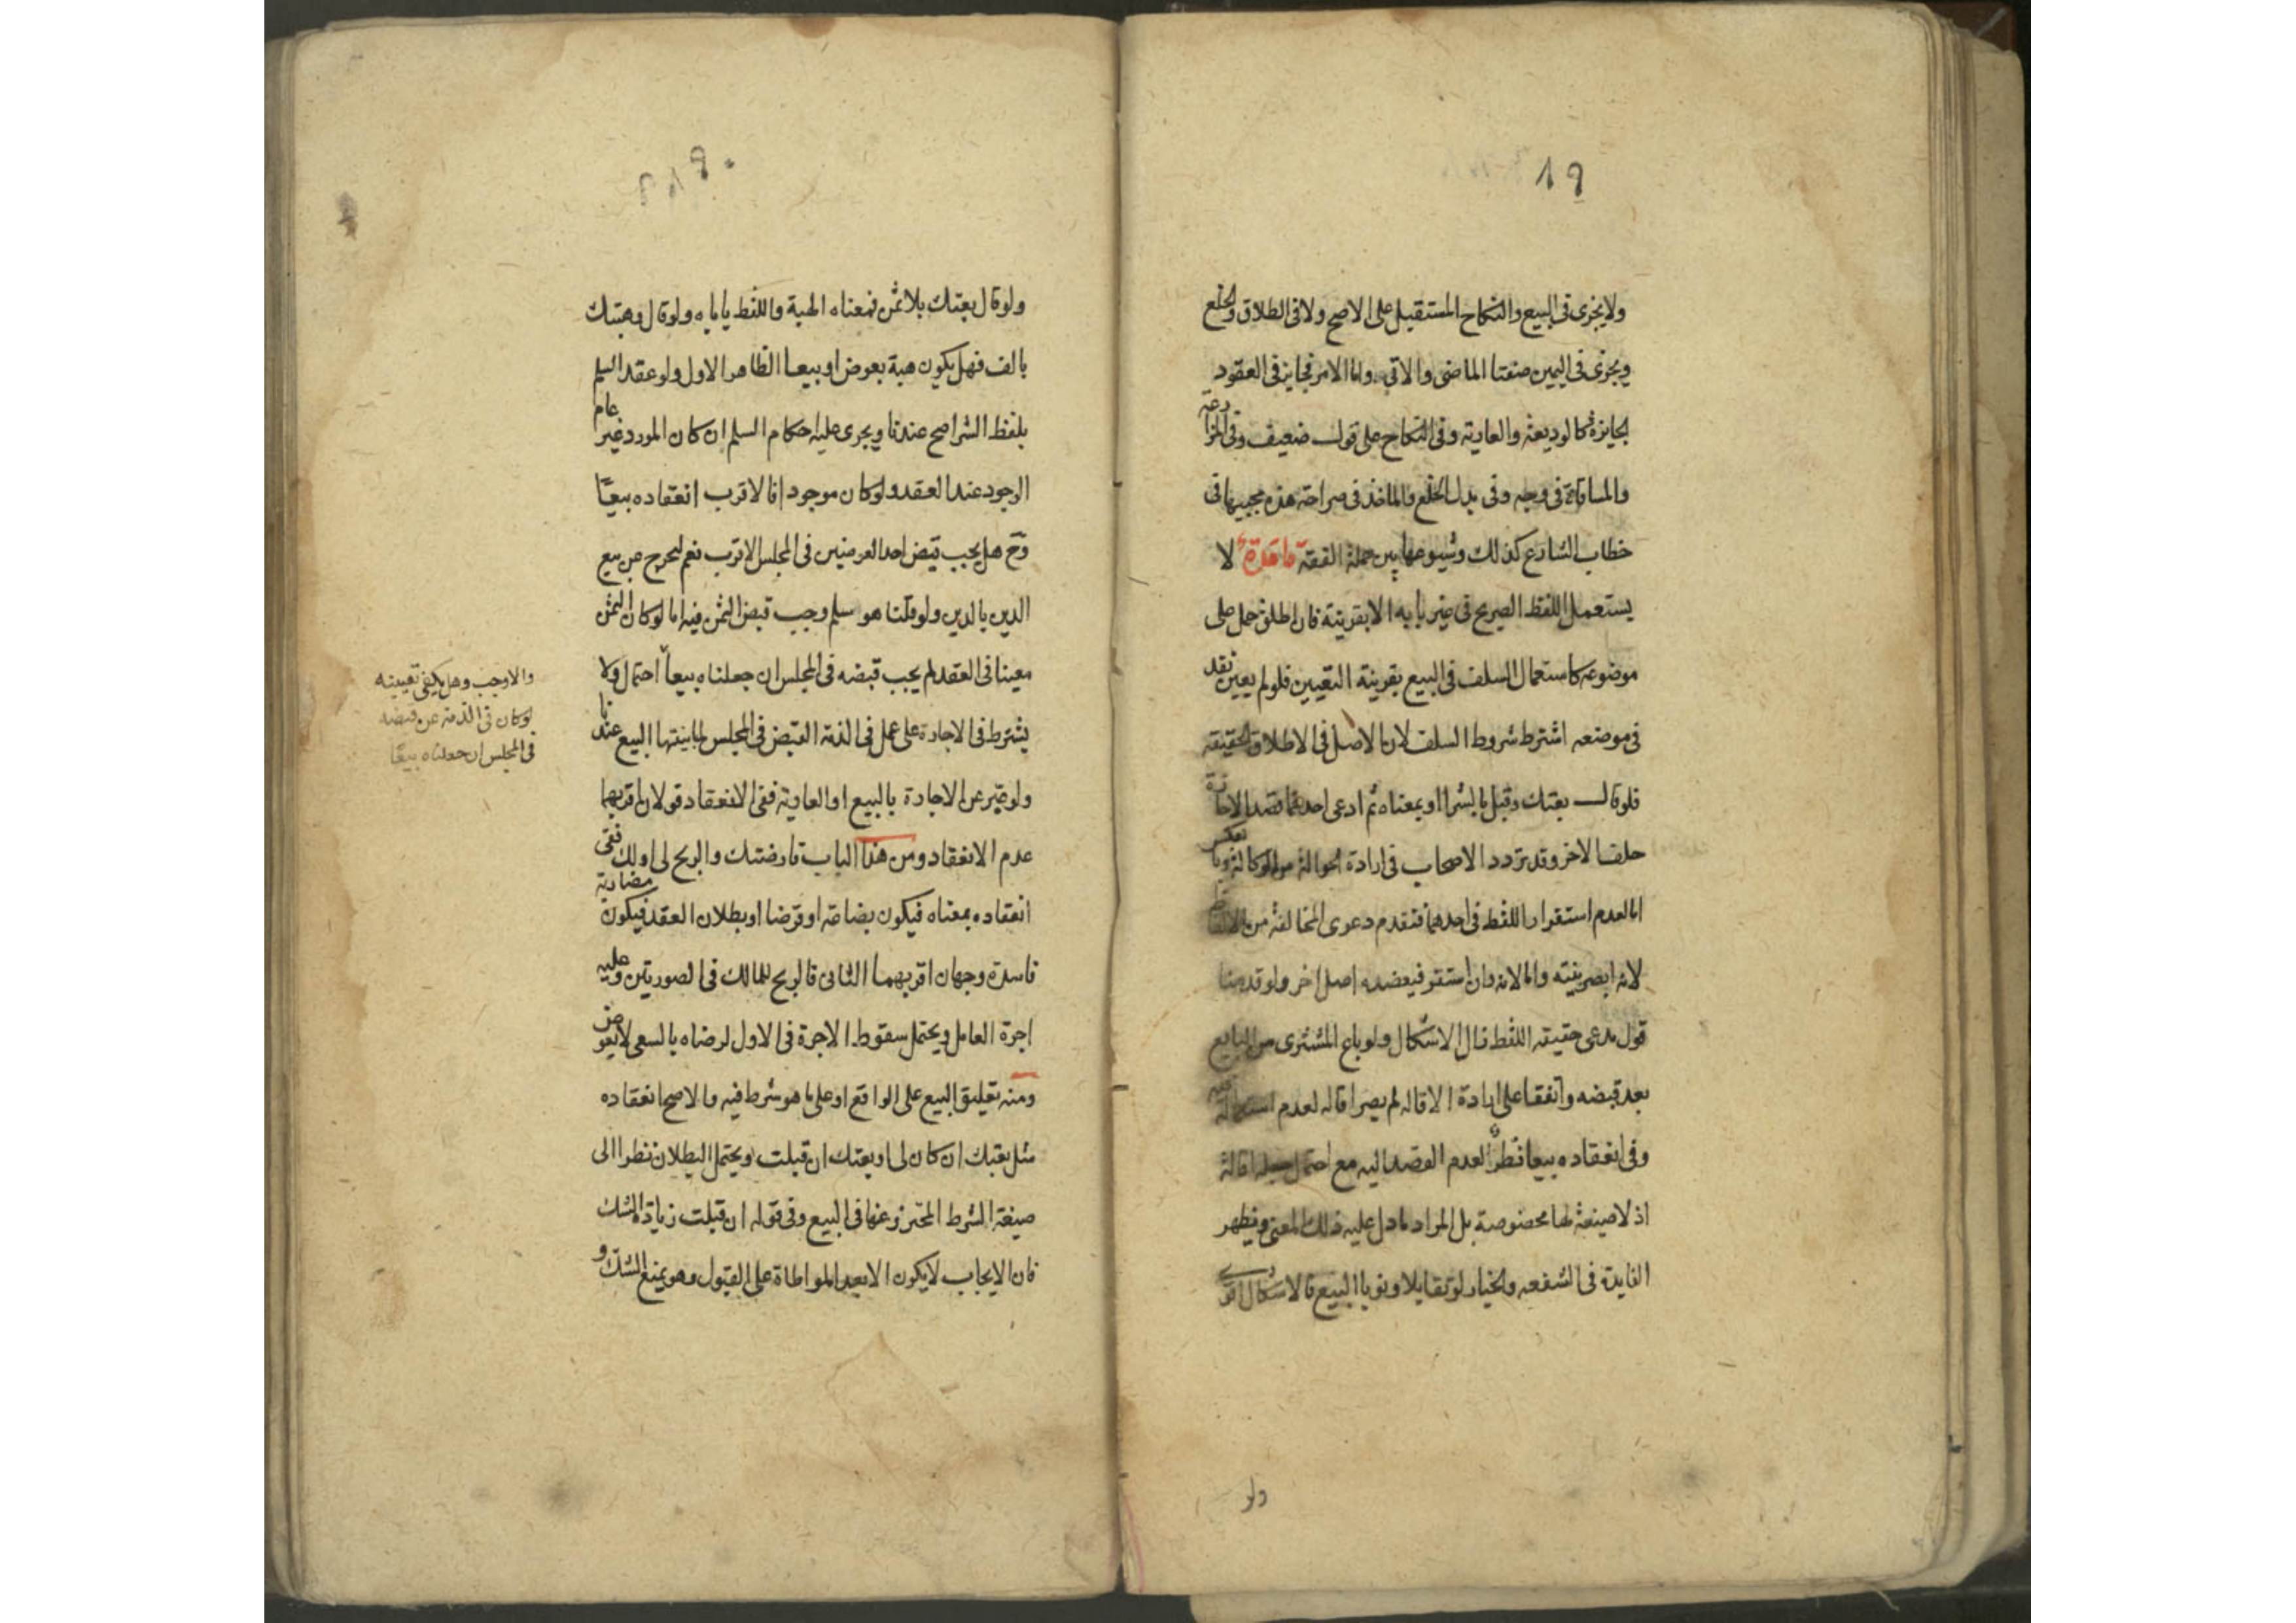 ١٩
ولا يجزى فى البيع والنكاح المستقبل على الاصح ولا فى الطلاق والخلع
ويجزى فى اليمين صيغتا الماضى والاتى واما الامر فجايز فى العقود
الجايزة كالوديعة والعارية وفى النكاح على قول ضعيف وفى المزارعة
والمساقاة فى وجه وفى بدل الخلع والماخذ فى صراحة هذه مجييها فى
خطاب الشارع كذلك وشيوعها بين حملة الفقه قاعدة لا
يستعمل اللفظ الصريح فى غير بابه الا بقرينة فان اطلق حمل على
موضوعه كاستعمال السلف فى البيع بقرينة التعيين فلو لم يعين نقد
فى موضعه اشترط شروط السلف لان الاصل فى الاطلاق الحقيقة
فلو قال بعتك وقبل بالشرا او بمعناه ثم ادعى احدهما قصد الاجارة
حلف الاخر وقد تردد الاصحاب فى ارادة الحوالة من الوكالة وبالعكس
اما لعدم استقرار اللفظ فى احدهما فتقدم دعوى المخالفة من اللافظ
لانه ابصر بنيته واما لانه وان استقر فيعضده اصل اخر ولو قدمنا
قول مدعى حقيقه اللفظ زال الاشكال ولو باع المشترى من البايع
بعد قبضه واتفقا على ارادة الاقاله لم يصر اقاله لعدم استعماله فيه
وفى انعقاده بيعا نظر لعدم القصد اليه مع احتمال جعله اقالة
اذ لا صيغة لها مخصوصة بل المراد ما دل عليه ذلك المعنى وتظهر
الفايدة فى الشفعه والخيار لو تقايلا ونويا البيع فالاشكال اقوى
ولو
ولو قال بعتك بلا ثمن فمعناه الهبة واللفظ ياباه ولو قال وهبتك
بالف فهل يكون هبة بعوض او بيعا الظاهر الاول ولو عقد السلم
بلفظ الشرا صح عندنا ويجرى عليه احكام السلم ان كان المورد غير عام
الوجود عند العقد ولو كان موجودا فالاقرب انعقاده بيعا
وح هل يجب قبض احد العوضين فى المجلس الاقرب نعم ليخرج عن بيع
الدين بالدين ولو قلنا هو سلم وجب قبض الثمن فيه اما لو كان الثمن
معينا فى العقد لم يجب قبضه فى المجلس ان جعلناه بيعا احتمال ولا
يشترط فى الاجارة على عمل فى الذمة القبض فى المجلس لمباينتها البيع عندنا
ولو عبر عن الاجارة بالبيع او العارية ففى الانعقاد قولان اقربهما
عدم الانعقاد ومن هذا الباب قارضتك والربح لى او لك ففى
انعقاده بمعناه فيكون بضاعة او قرضا او بطلان العقد فيكون مضاربة
فاسدة وجهان اقربهما الثانى فالربح للمالك فى الصورتين وعليه
اجرة العامل ويحتمل سقوط الاجرة فى الاول لرضاه بالسعى لا بعوض
ومنه تعليق البيع على الواقع او على ما هو شرط فيه والاصح انعقاده
مثل بعتك ان كان لى او بعتك ان قبلت ويحتمل البطلان نظرا الى
صيغة الشرط المحترز عنها فى البيع وفى قوله ان قبلت زيادة الشك
فان الايجاب لا يكون الا بعد المواطاة على القبول وهو يمنع الشك و
والا وجب وهل يكفى تعيينه
لو كان فى الذمة عن قبضه
فى المجلس ان جعلناه بيعا